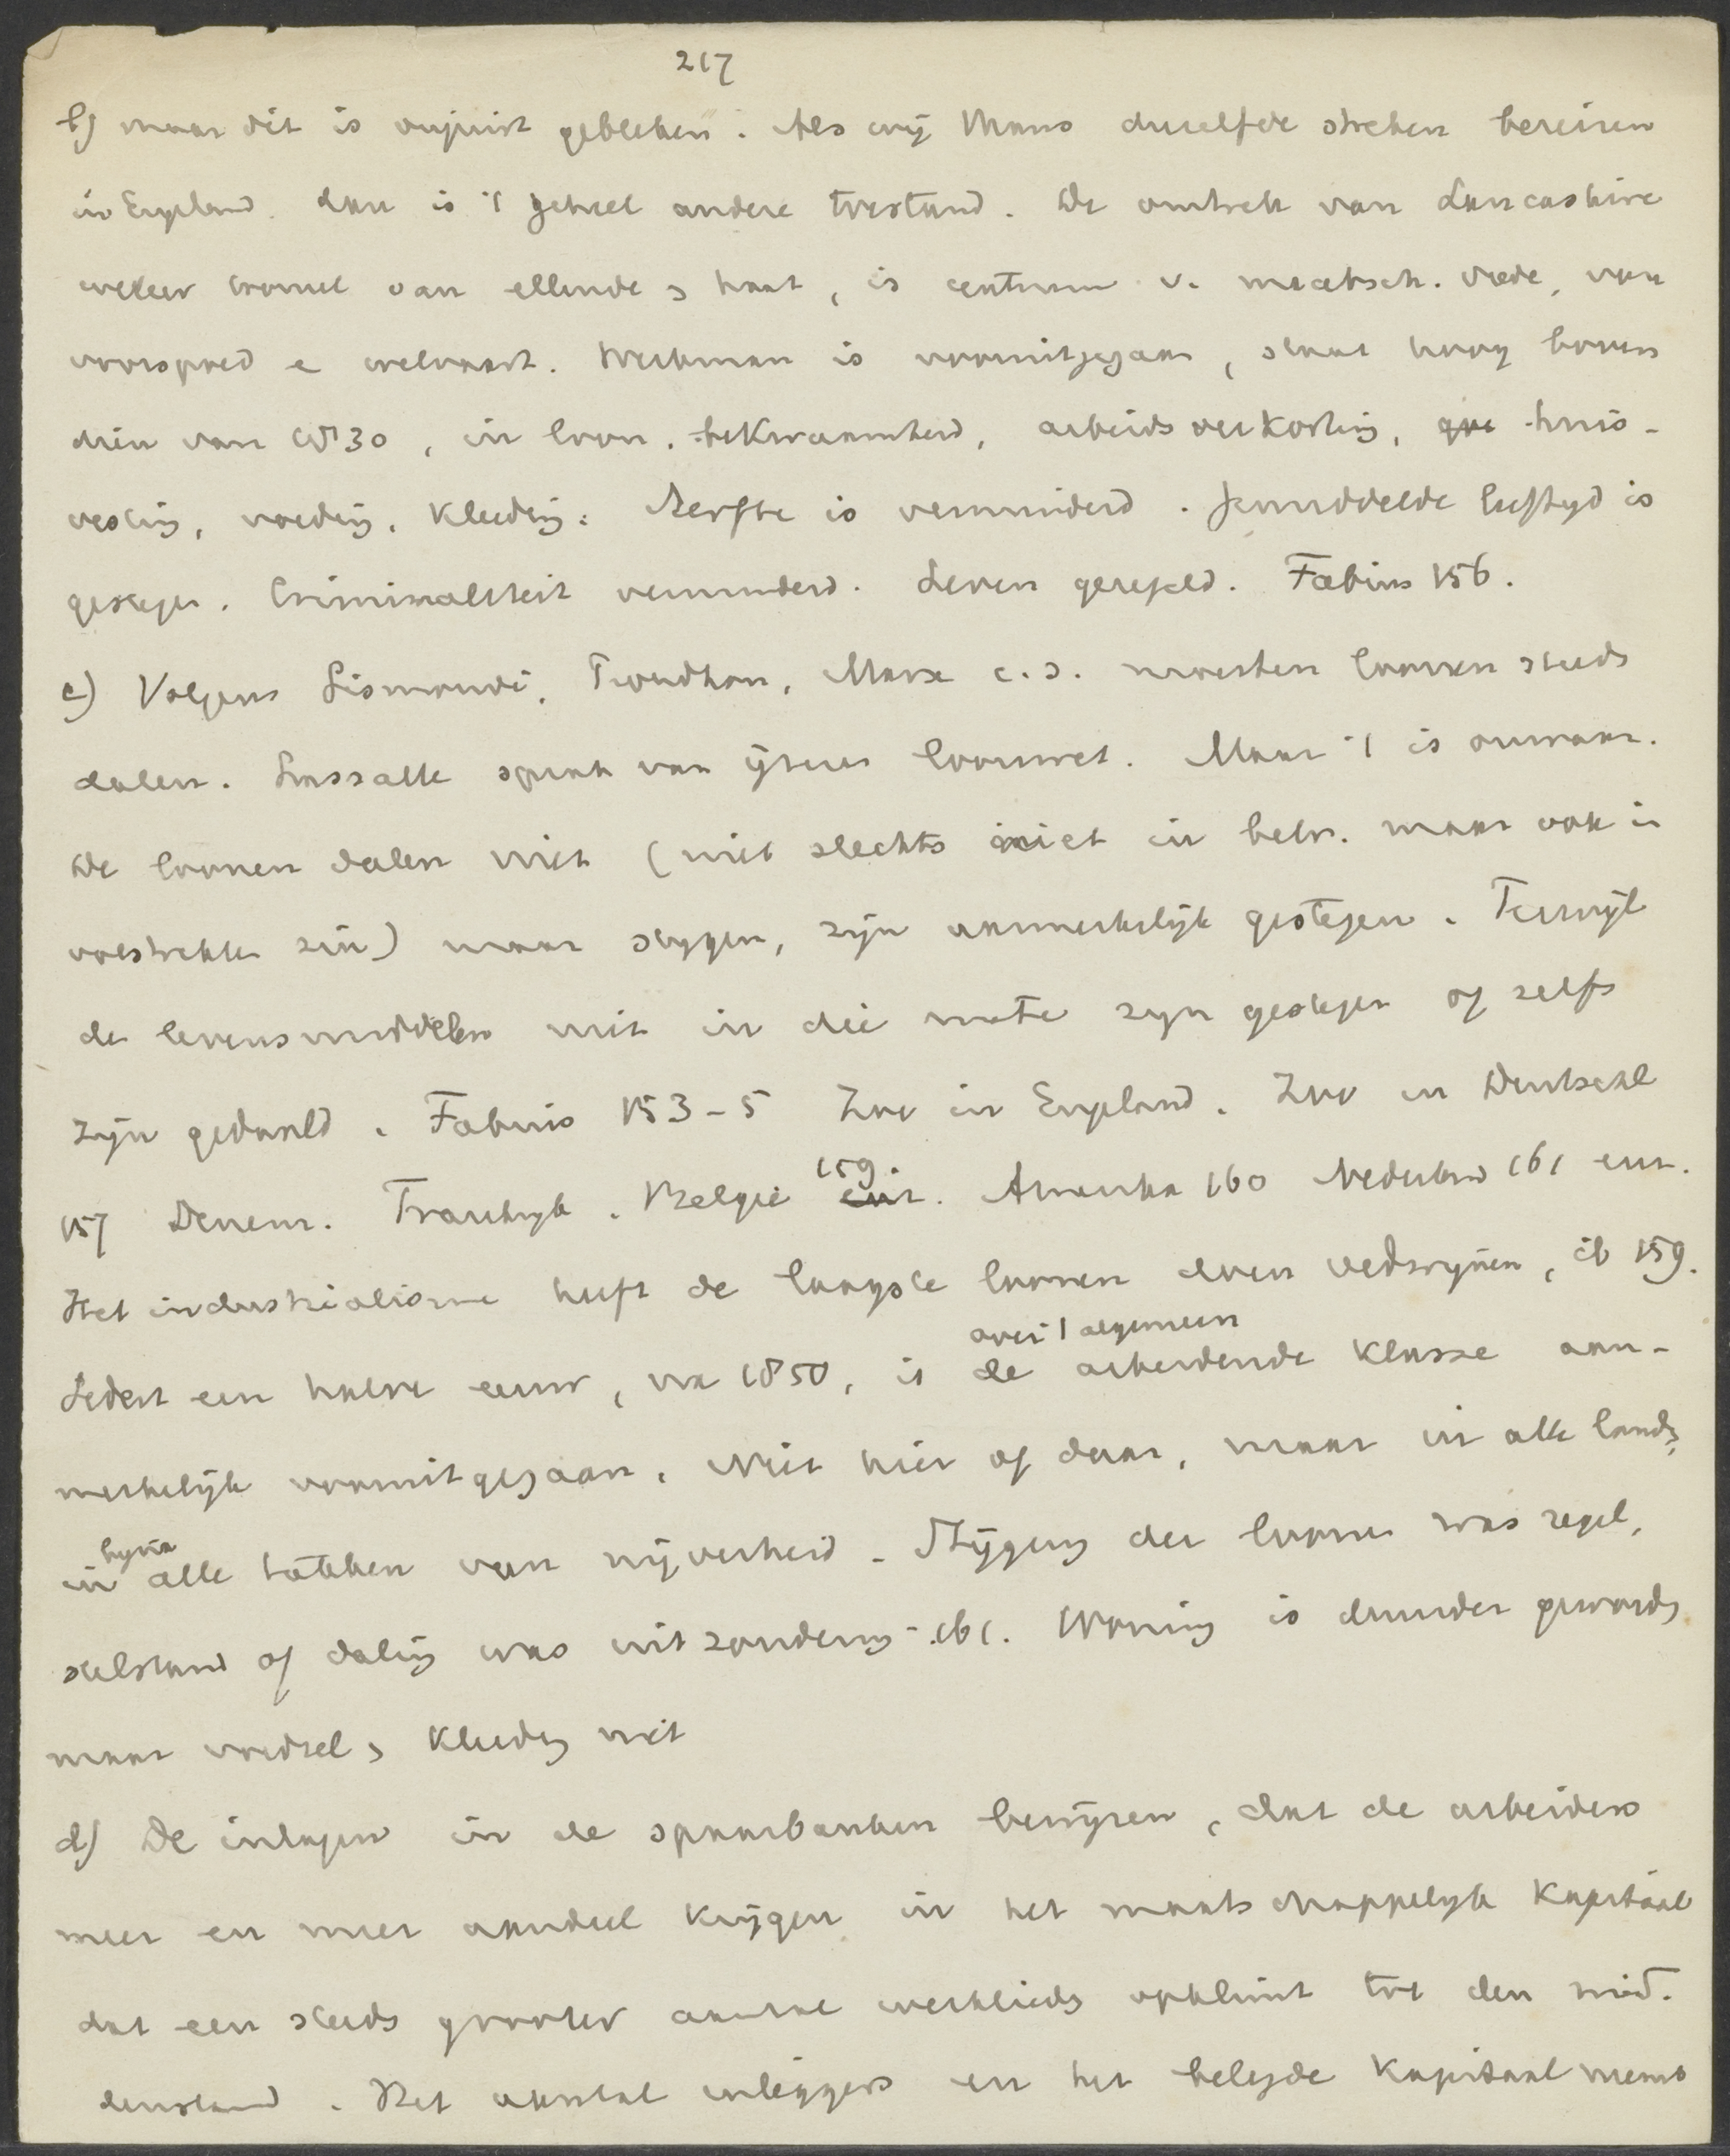 217
b) maar dit is onjuist gebleken. Als wij thans dezelfde streken bereizen
in Engeland. dan is 't geheel andere toestand. De omtrek van Lancashire
weleer tooneel van ellende & haat, is centrum v. maatsch. vrede, van
voorspoed e welvaart. Werkman is vooruitgegaan, staat hoog boven
dien van 1830, in loon, bekwaamheid, arbeidsverkorting, huis-
vesting, voeding, kleeding. Sterfte is verminderd. Gemiddelde leeftyd is
gestegen. Criminaliteit verminderd. Leven geregeld. Fabius 156.
c) Volgens Sismondi, Proudhon, Marx c.s. moesten loonen steeds
dalen. Lassalle sprak van ijzeren loonwet. Maar 't is onwaar.
De loonen dalen niet (niet slechts niet in betr. maar ook in
volstrekten zin) maar stygen, zijn aanmerkelijk gestegen. Terwijl
de levensmiddelen niet in die mate zyn gestegen of zelfs
zijn gedaald. Fabius 153-5 Zoo in Engeland. Zoo in Deutschl
157 Denem. Frankryk. Belgie 159. Amerika 160 Nederland 161 enz.
Het industrialisme heeft de laagste loonen doen verdwijnen, ib 159.
over 't algemeen
Sedert een halve eeuw, na 1850, is de arbeidende klasse aan-
merkelijk vooruitgegaan. Niet hier of daar, maar in alle landen,
bijna
in alle takken van nijverheid. Stijging der loonen was regel,
stilstand of daling was uitzondering. 161. Woning is duurder geworden
maar voedsel & kleeding niet
d) De inlagen in de spaarbanken bewijzen, dat de arbeiders
meer en meer aandeel krijgen in het maatschappelyk kapitaal
dat een steeds grooter aantal werklieden opklimt tot den mid-
denstand. Het aantal inleggers en het belegde kapitaal neemt